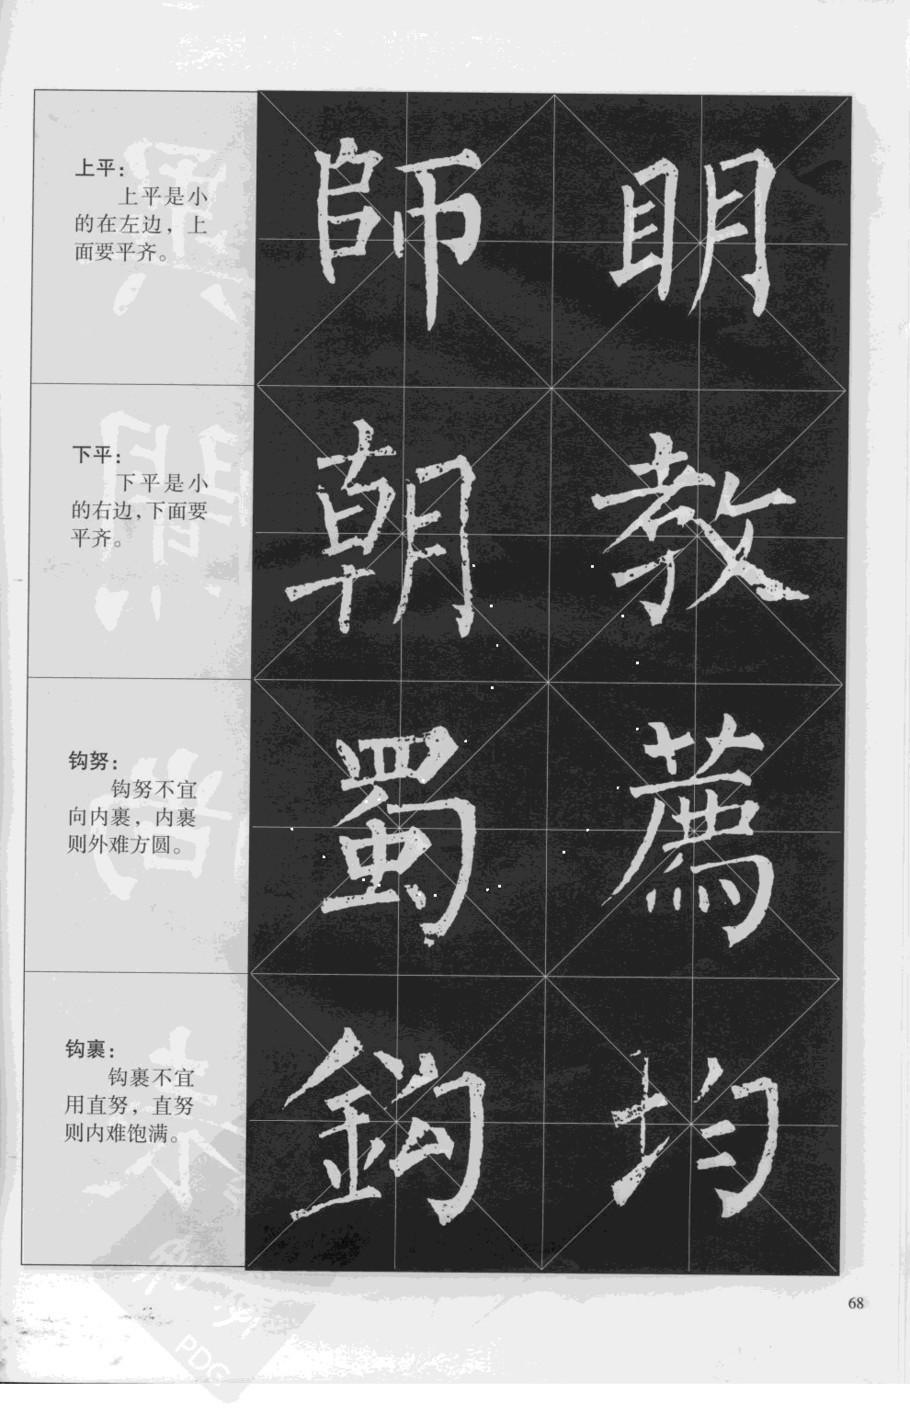 上平：
上平是小
的在左边，上
面要平齐。
師 明
下平：
下平是小
的右边，下面要
平齐。
朝 教
钩努：
钩努不宜
向内裹，内裹
则外难方圆。
蜀 薦
钩裹：
钩裹不宜
用直努，直努
则内难饱满。
鈎 均
68
PDG